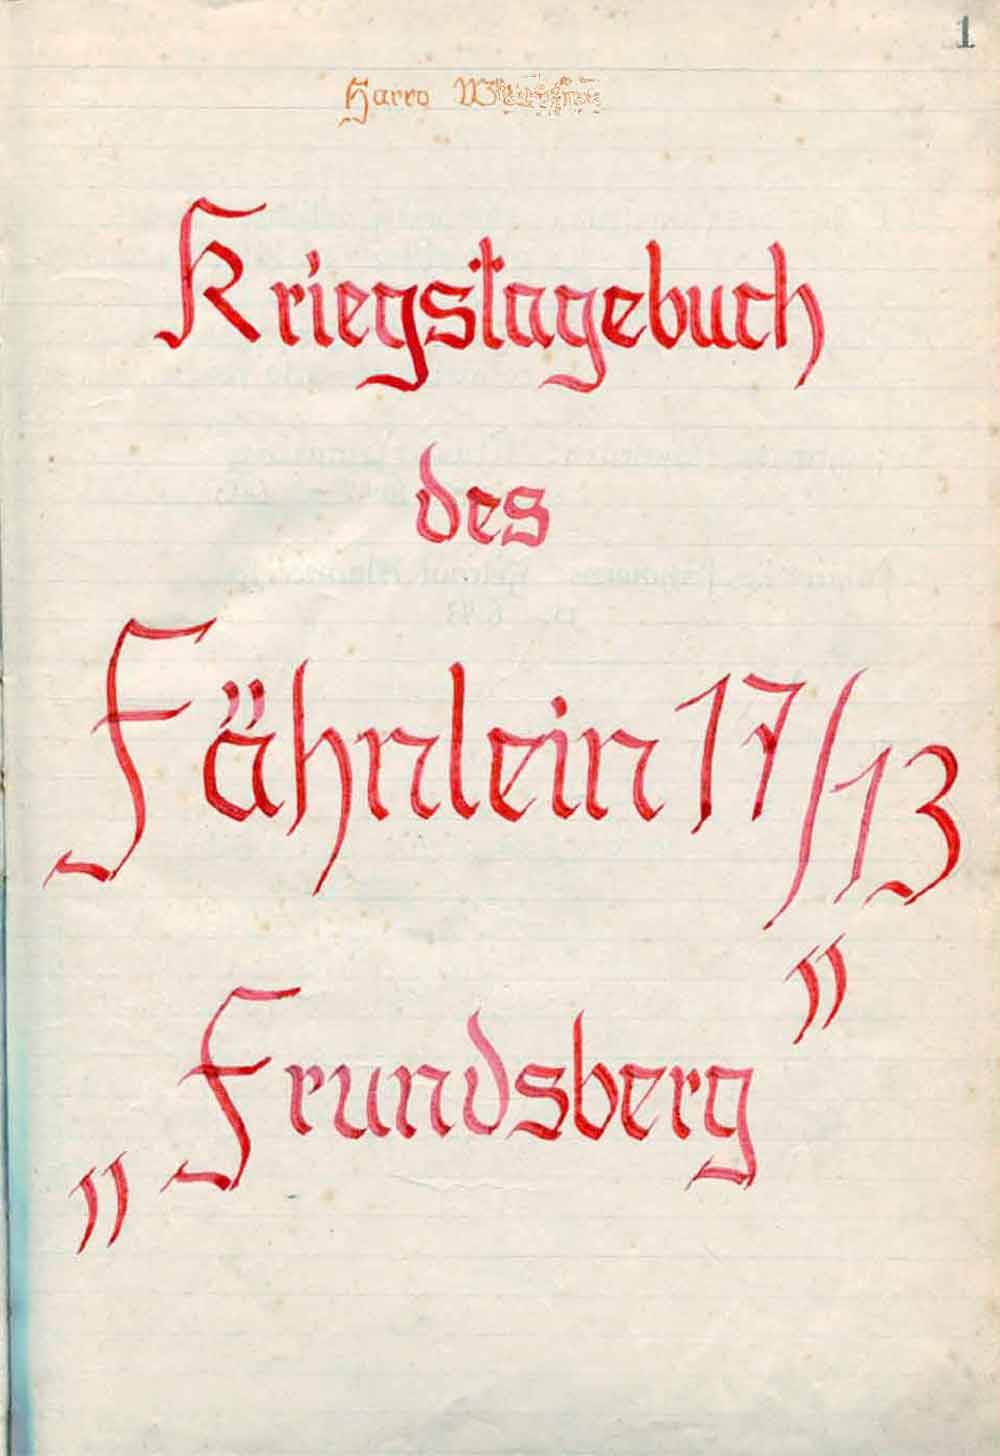 1
Harro
Kriegstagebuch
des
Fähnlein 17/13
„Frundsberg”